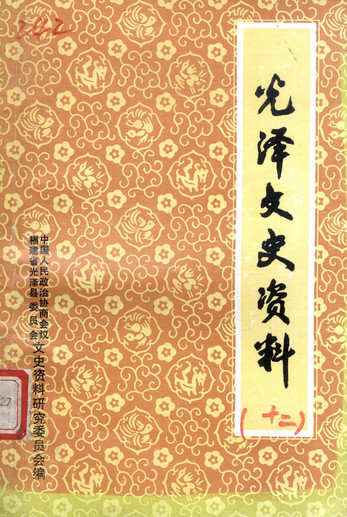 2042
光泽文史资料
(十二)
中国人民政治协商会议
福建省光泽县委员会
文史资料研究委员会编